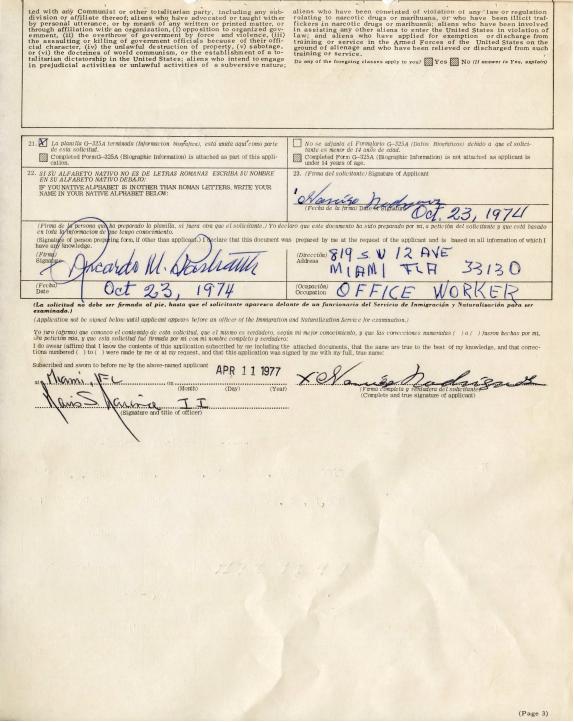 ted with any Communist or other totalitarian party, including any sub-
division or affiliate thereof; aliens who have advocated or taught either
by personal utterance, or by means of any written or printed matter, or
through affiliation with an organization, (i) opposition to organized gov-
ernment, (ii) the overthrow of government by force and violence, (iii)
the assaulting or killing of government officials because of their offi-
cial character, (iv) the unlawful destruction of property, (v) sabotage,
or (vi) the doctrines of world communism, or the establishment of a to-
talitarian dictatorship in the United States; aliens who intend to engage
in prejudicial activities or unlawful activities of a subversive nature;
aliens who have been convicted of violation of any law or regulation
relating to narcotic drugs or marihuana, or who have been illicit traf-
fickers in narcotic drugs or marihuana; aliens who have been involved
in assisting any other aliens to enter the United States in violation of
law; and aliens who have applied for exemption or discharge from
training or service in the Armed Forces of the United States on the
ground of alienage and who have been relieved or discharged from such
training or service.
Do any of the foregoing classes apply to you? Yes No (If answer is Yes, explain)
21. X La planilla G-325A terminada (Informacion Biografica), está unida aquí como parte
de esta solicitud.
Completed Form G-325A (Biographic Information) is attached as part of this appli-
cation.
No se adjunta el Formulario G-325A (Datos Biograficos) debido a que el solici-
tante es menor de 14 años de edad.
Completed Form G-325A (Biographic Information) is not attached as applicant is
under 14 years of age.
22. SI SU ALFABETO NATIVO NO ES DE LETRAS ROMANAS ESCRIBA SU NOMBRE
EN SU ALFABETO NATIVO DEBAJO:
IF YOU NATIVE ALPHABET IS IN OTHER THAN ROMAN LETTERS, WRITE YOUR
NAME IN YOUR NATIVE ALPHABET BELOW:
23. (Firma del solicitante) Signature of Applicant
(Fecha de la firma) Date of Signature
Oct. 23, 1974
(Firma de la persona que ha preparado la planilla, si fuera otra que el solicitante.) Yo declaro que este documento ha sido preparado por mi, a petición del solicitante y que está basado
en toda la informacion de que tengo conocimiento.
(Signature of person preparing form, if other than applicant.) I declare that this document was prepared by me at the request of the applicant and is based on all information of which I
have any knowledge.
(Firma)
Signature
Ricardo M.
(Dirección)
Address
819 SW 12 AVE
MIAMI FLA 33130
(Fecha)
Date
Oct 23, 1974
(Ocupacion)
Occupation
OFFICE WORKER
(La solicitud no debe ser firmada al pie, hasta que el solicitante aparezca delante de un funcionario del Servicio de Inmigración y Naturalización para ser
examinado.)
(Application not be signed below until applicant appears before an officer of the Immigration and Naturalization Service for examination.)
Yo juro (afirmo) que conozco el contenido de esta solicitud, que el mismo es verdadero, según mi mejor conocimiento, y que las correcciones numeradas ( ) a ( ) fueron hechas por mí,
a petición mia, y que esta solicitud fue firmada por mi con mi nombre completo y verdadero:
I do swear (affirm) that I know the contents of this application subscribed by me including the attached documents, that the same are true to the best of my knowledge, and that correc-
tions numbered ( ) to ( ) were made by me or at my request, and that this application was signed by me with my full, true name:
Subscribed and sworn to before me by the above-named applicant
at Miami, FL on APR 11 1977
(Month) (Day) (Year)
II
(Signature and title of officer)
X
(Firma completa y verdadera del solicitante)
(Complete and true signature of applicant)
(Page 3)